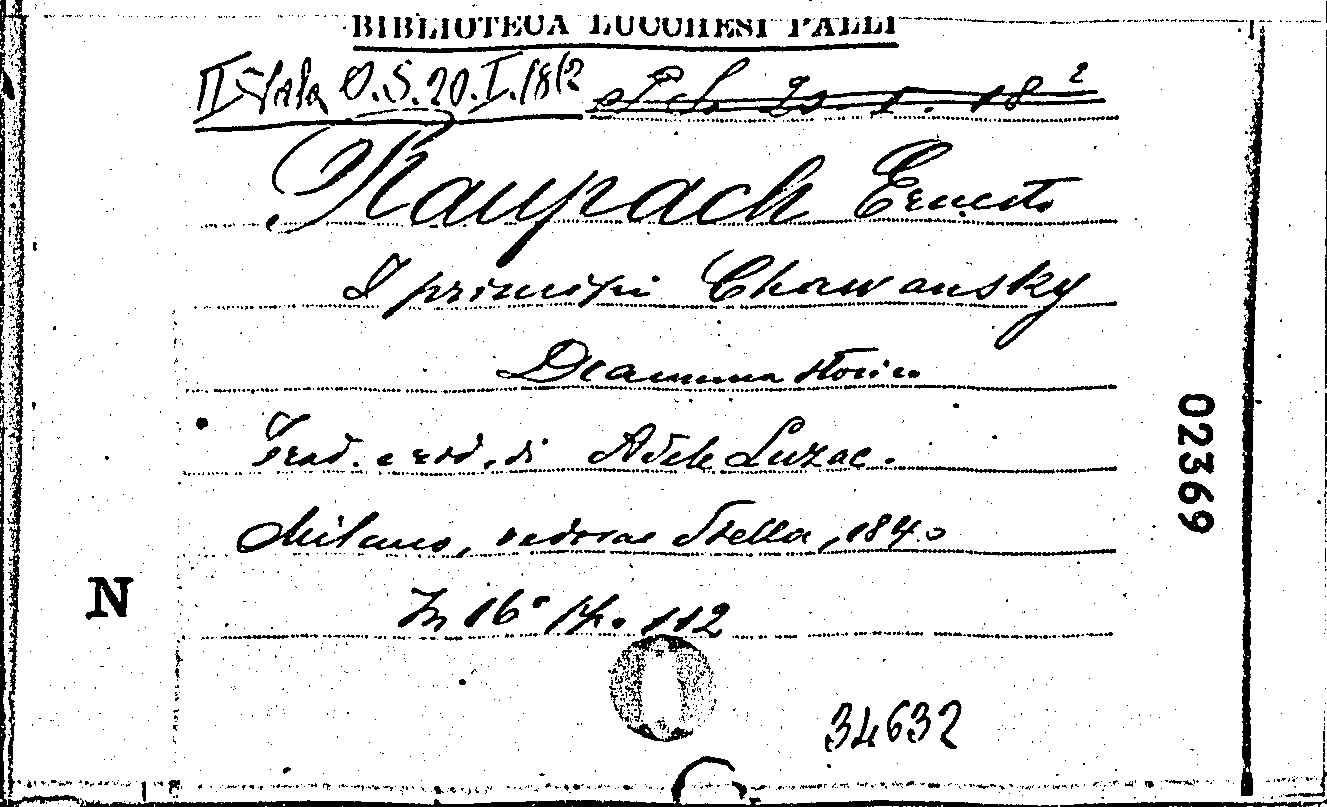 BIBLIOTECA LUCCHESI PALLI
II Sala O.S.20.I.18(2
Raupach Ernesto
I principi Chawansky
Dramma storico
Trad. e rid. di Adele Luzac.
Milano, vedova Stella, 1840
In 16° pp. 112
N
02369
34632